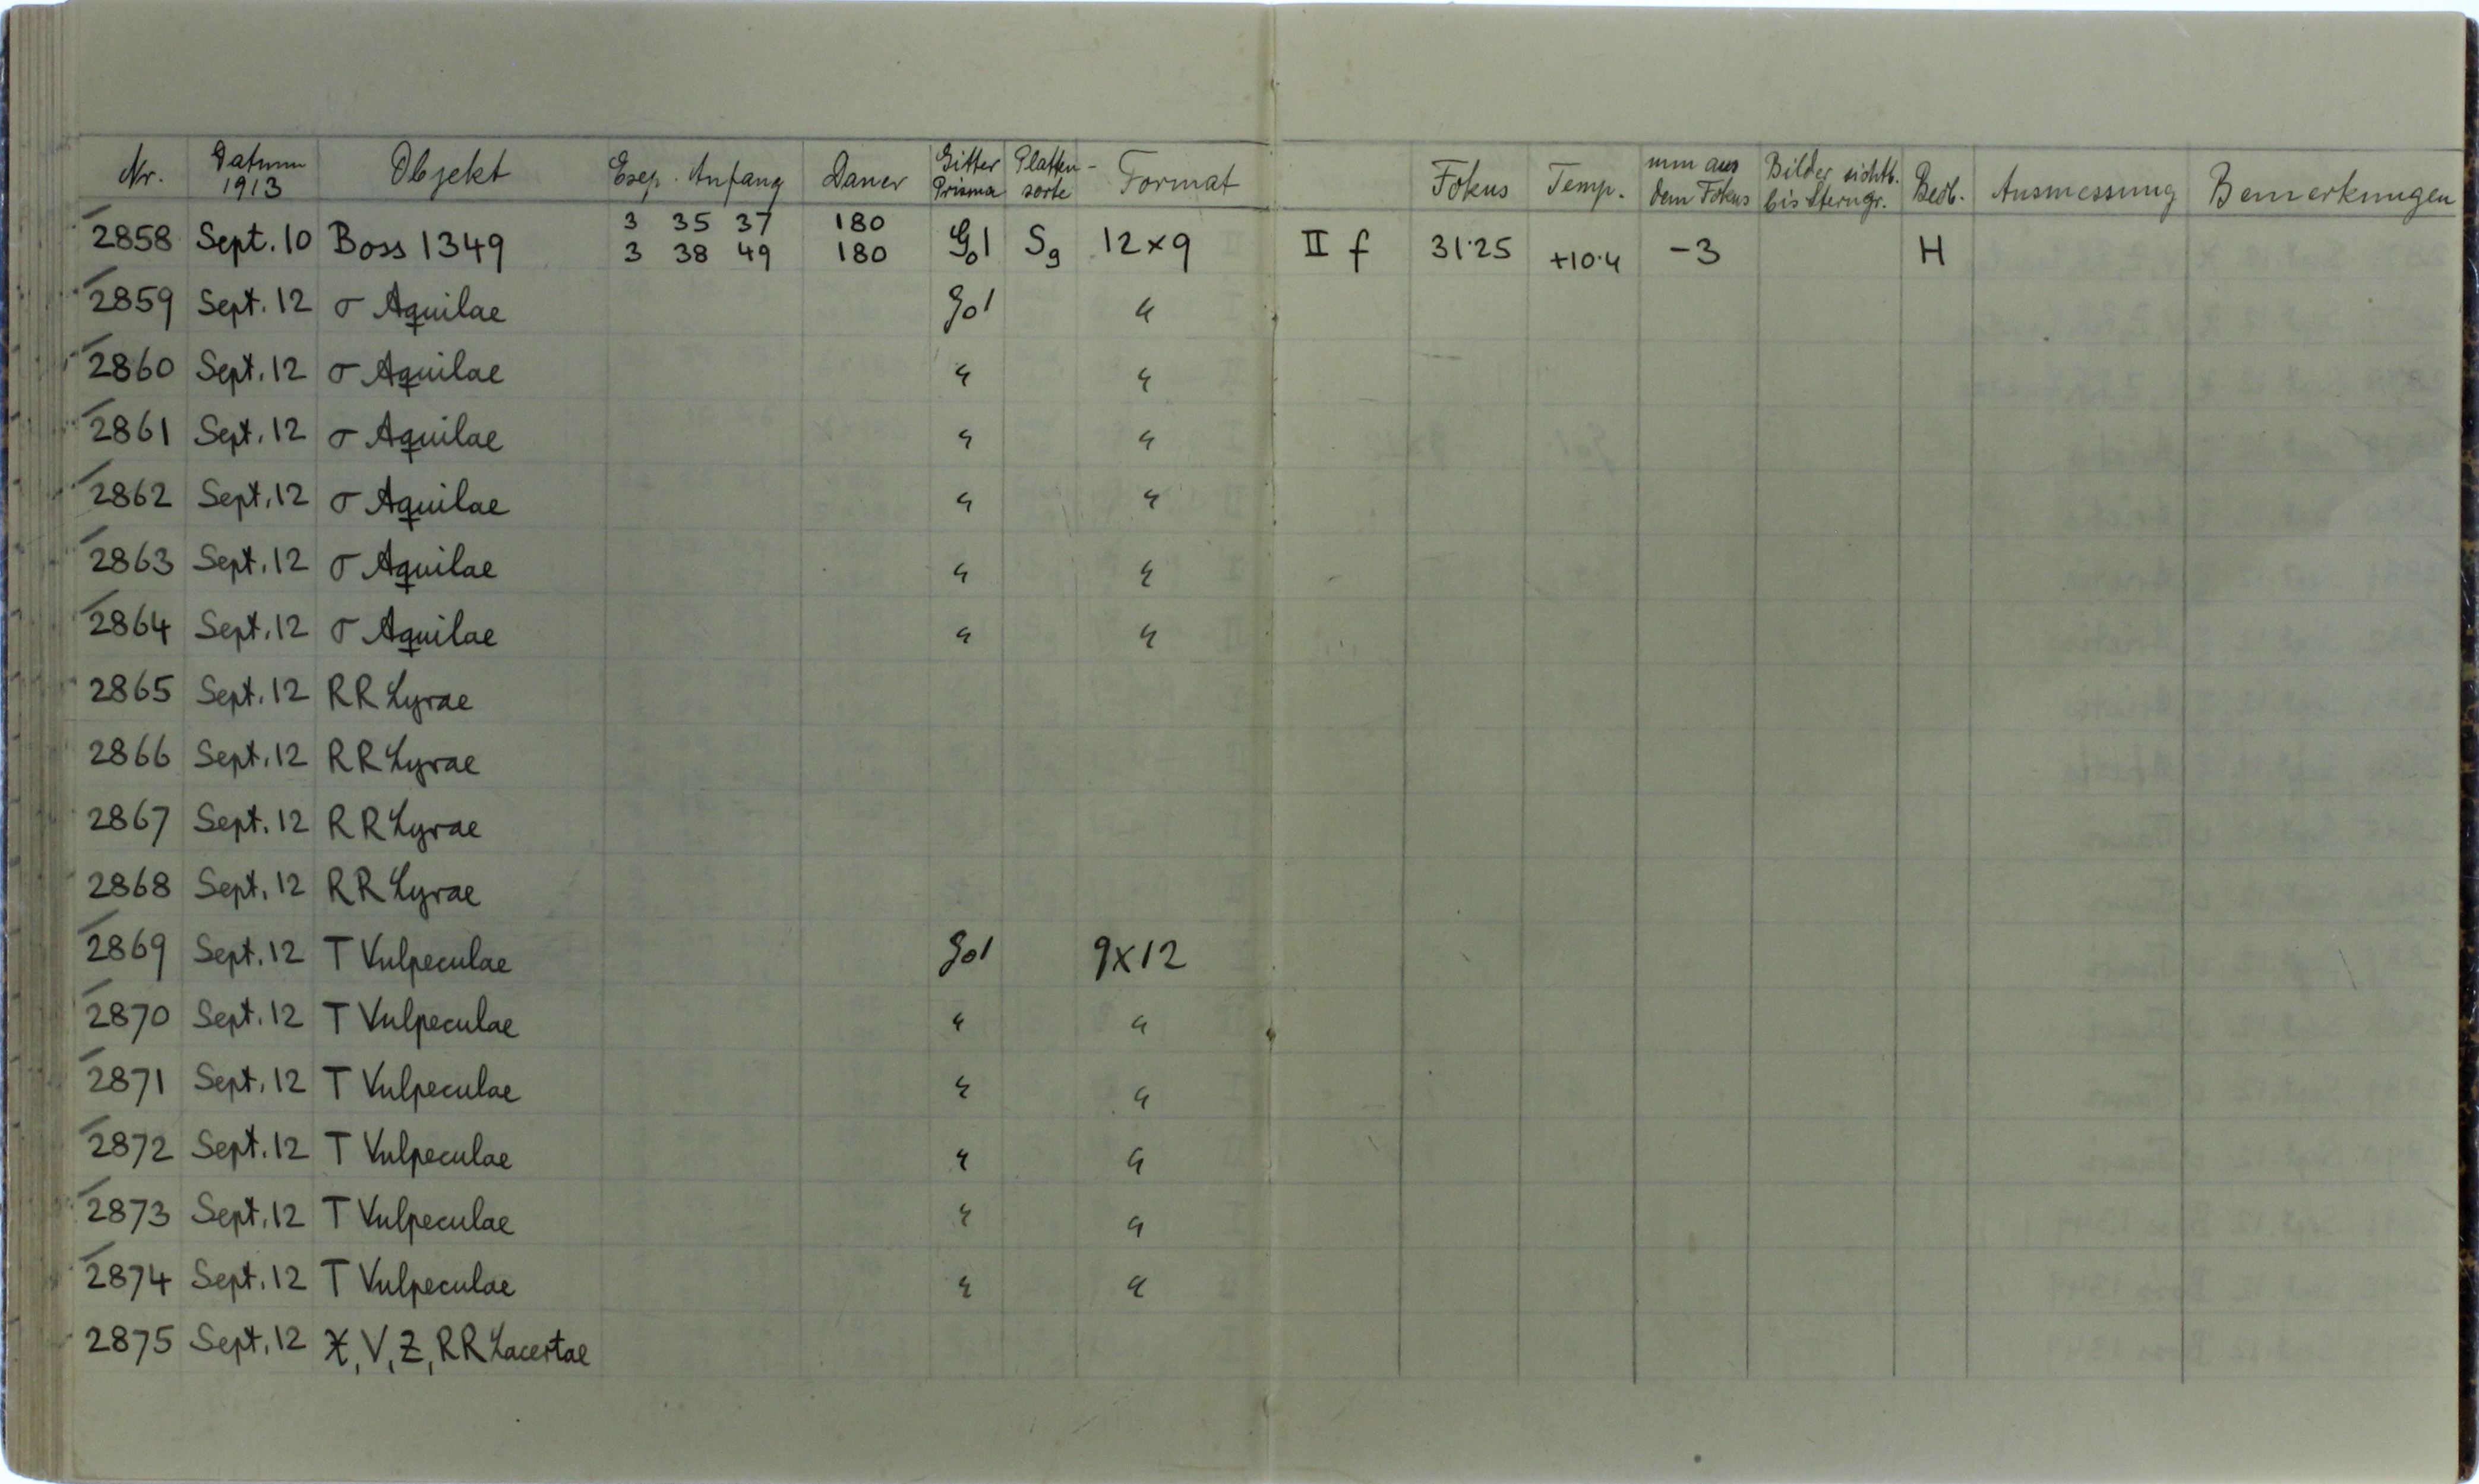 Nr. Datum 1913 Objekt Exp. Anfang Dauer Gitter Prisma Platten-sorte Format Fokus Temp. mm aus dem Fokus Bilder sichtb. bis Sterngr. Beob. Ausmessung Bemerkungen
3 35 37 180
2858 Sept. 10 Boss 1349 3 38 49 180 G01 Sg 12×9 II f 31.25 +10.4 -3 H
2859 Sept. 12 σ Aquilae G01 "
2860 Sept. 12 σ Aquilae " "
2861 Sept. 12 σ Aquilae " "
2862 Sept. 12 σ Aquilae " "
2863 Sept. 12 σ Aquilae " "
2864 Sept. 12 σ Aquilae " "
2865 Sept. 12 RR Lyrae
2866 Sept. 12 RR Lyrae
2867 Sept. 12 RR Lyrae
2868 Sept. 12 RR Lyrae
2869 Sept. 12 T Vulpeculae G01 9×12
2870 Sept. 12 T Vulpeculae " "
2871 Sept. 12 T Vulpeculae " "
2872 Sept. 12 T Vulpeculae " "
2873 Sept. 12 T Vulpeculae " "
2874 Sept. 12 T Vulpeculae " "
2875 Sept. 12 X, V, Z, RR Lacertae